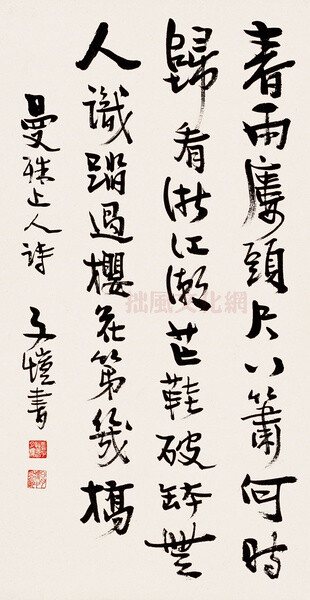 春雨廔頭尺八簫何時
歸看浙江潮芒鞋破缽無
人識踏過櫻花第幾橋
曼殊上人詩 子愷書
拙風文化網